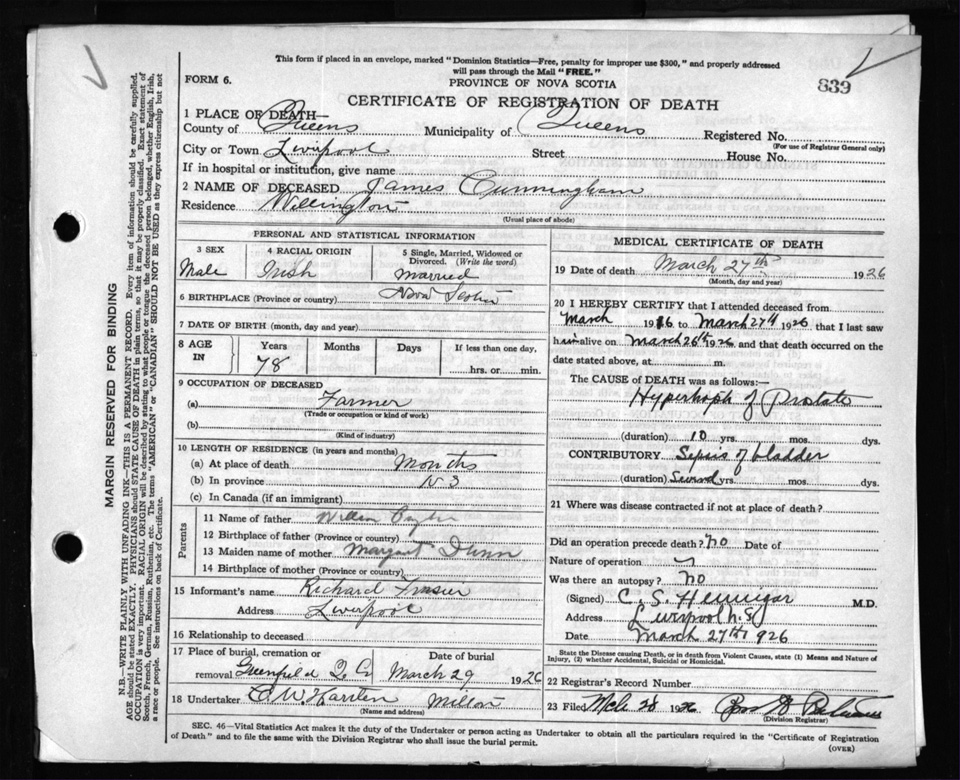 This form if placed in an envelope, marked "Dominion Statistics—Free, penalty for improper use $300," and properly addressed
will pass through the Mail "FREE."
FORM 6.
PROVINCE OF NOVA SCOTIA
839
CERTIFICATE OF REGISTRATION OF DEATH
1 PLACE OF DEATH—
County of Queens Municipality of Queens Registered No.
(For use of Registrar General only)
City or Town Liverpool Street House No.
If in hospital or institution, give name
2 NAME OF DECEASED James Cunningham
Residence Willington
(Usual place of abode)
PERSONAL AND STATISTICAL INFORMATION
3 SEX 4 RACIAL ORIGIN 5 Single, Married, Widowed or Divorced. (Write the word)
Male Irish Married
6 BIRTHPLACE (Province or country) Nova Scotia
7 DATE OF BIRTH (month, day and year)
8 AGE IN Years Months Days If less than one day,
78 hrs. or min.
9 OCCUPATION OF DECEASED
(a) Farmer
(Trade or occupation or kind of work)
(b)
(Kind of industry)
10 LENGTH OF RESIDENCE (in years and months)
(a) At place of death Months
(b) In province N S
(c) In Canada (if an immigrant)
Parents
11 Name of father
12 Birthplace of father (Province or country)
13 Maiden name of mother Margaret
14 Birthplace of mother (Province or country)
15 Informant's name Richard Frasier
Address Liverpool
16 Relationship to deceased
17 Place of burial, cremation or removal Greenfield Q. Co Date of burial March 29 1926
18 Undertaker Milton
(Name and address)
MEDICAL CERTIFICATE OF DEATH
19 Date of death March 27th 1926
(Month, day and year)
20 I HEREBY CERTIFY that I attended deceased from
March 19 to March 27th 1926, that I last saw
him alive on March 26th 1926, and that death occurred on the
date stated above, at m.
The CAUSE of DEATH was as follows:—
Hypertroph of Prostate
(duration) 10 yrs. mos. dys.
CONTRIBUTORY Sepsis of bladder
(duration) Several yrs. mos. dys.
21 Where was disease contracted if not at place of death?
Did an operation precede death? No Date of
Nature of operation
Was there an autopsy? No
(Signed) C. S. Hennigar M.D.
Address Liverpool N.S.
Date March 27th 1926
State the Disease causing Death, or in death from Violent Causes, state (1) Means and Nature of
Injury, (2) whether Accidental, Suicidal or Homicidal.
22 Registrar's Record Number
23 Filed Mch 28 1926
(Division Registrar)
SEC. 46—Vital Statistics Act makes it the duty of the Undertaker or person acting as Undertaker to obtain all the particulars required in the "Certificate of Registration
of Death" and to file the same with the Division Registrar who shall issue the burial permit.
(OVER)
MARGIN RESERVED FOR BINDING
N.B.—WRITE PLAINLY WITH UNFADING INK—THIS IS A PERMANENT RECORD. Every item of information should be carefully supplied.
AGE should be stated EXACTLY. PHYSICIANS should STATE CAUSE OF DEATH in plain terms, so that it may be properly classified. Exact statement of
OCCUPATION is very important. RACIAL ORIGIN will be described by stating to what people or tongue the deceased person belonged, whether English, Irish,
Scotch, French, German, Russian, Ruthenian, etc. The terms "AMERICAN" or "CANADIAN" SHOULD NOT BE USED as they express citizenship but not
a race or people. See instructions on back of Certificate.